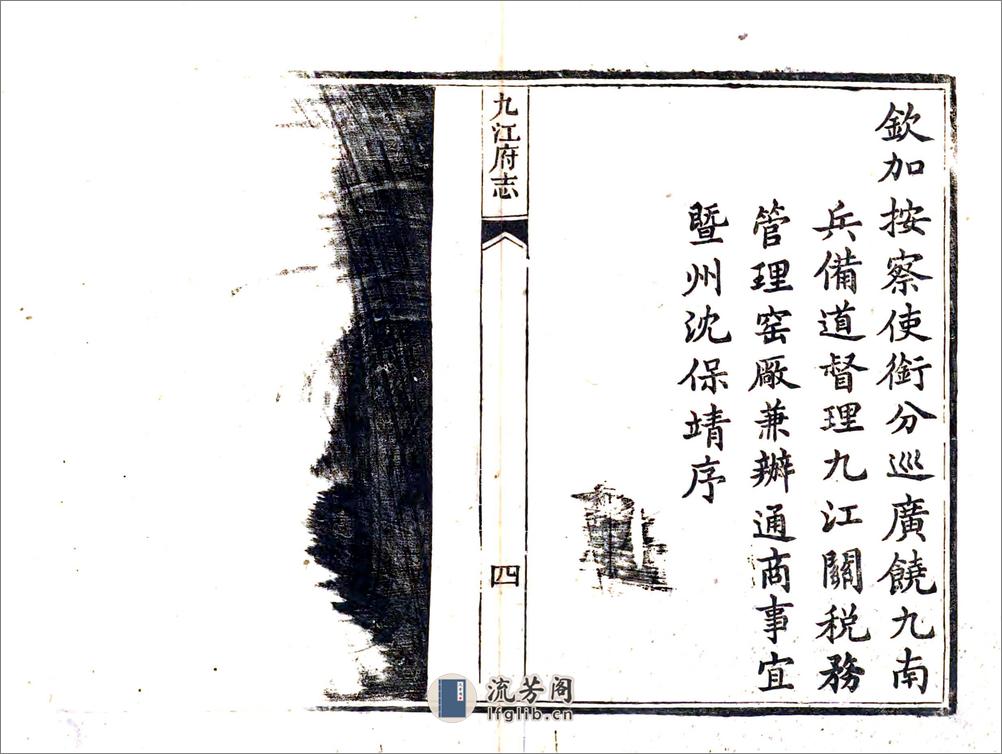 欽加按察使銜分巡廣饒九南
兵備道督理九江關稅務
管理窑厰兼辦通商事宜
暨州沈保靖序
九江府志
四
流芳阁
lfglib.cn